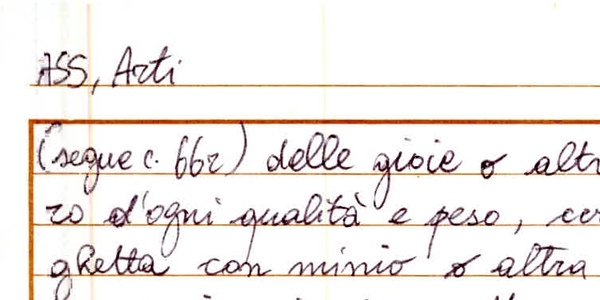 ASS, Arti
(segue c. 66r) delle gioie o altr
ro d'ogni qualità e peso, cer
ghetta con minio o altra